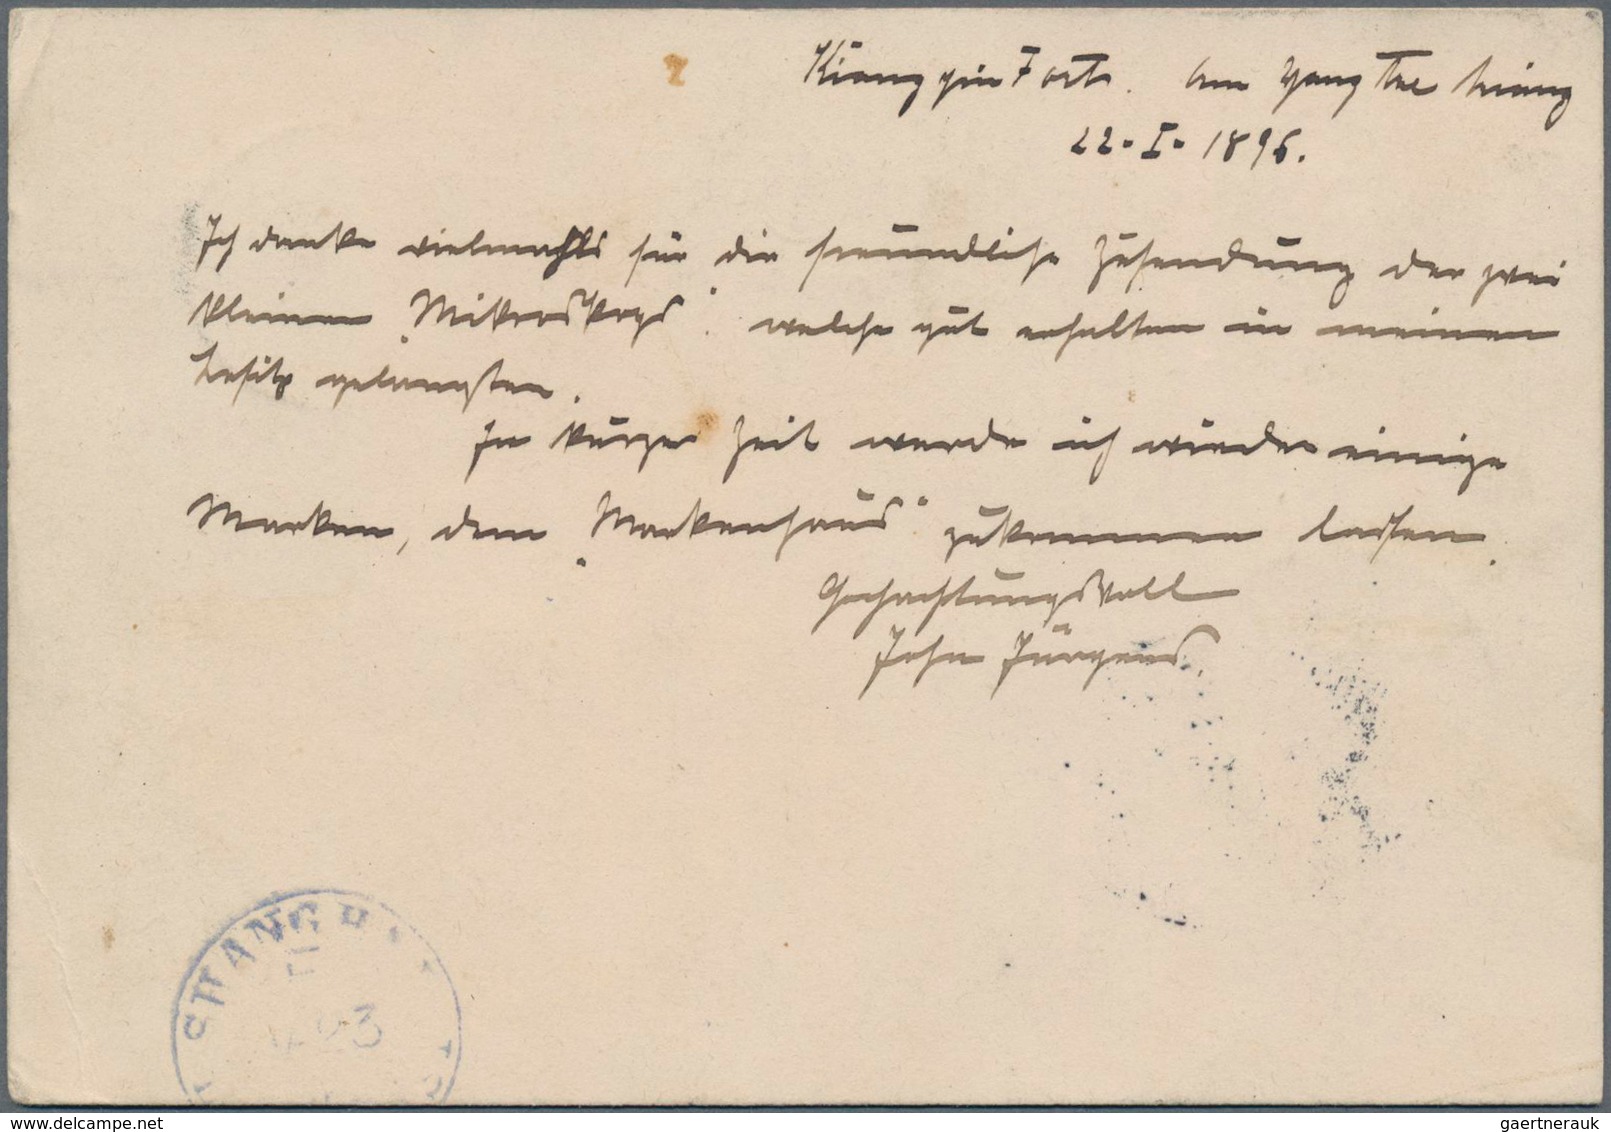 Kiang yin Fort. Am Yang Tse Kiang
22. I. 1896.
Ich danke vielmahls für die freundliche Zusendung der zwei
kleinen „Mikroskops" welche gut erhalten in meinen
Besitz gelangten.
In kurzer Zeit werde ich wieder einige
Marken, dem „Markenhaus" zukommen lassen.
Hochachtungsvoll
John Jürgens.
SHANGHA
23
delcampe.net
gaertnerauk